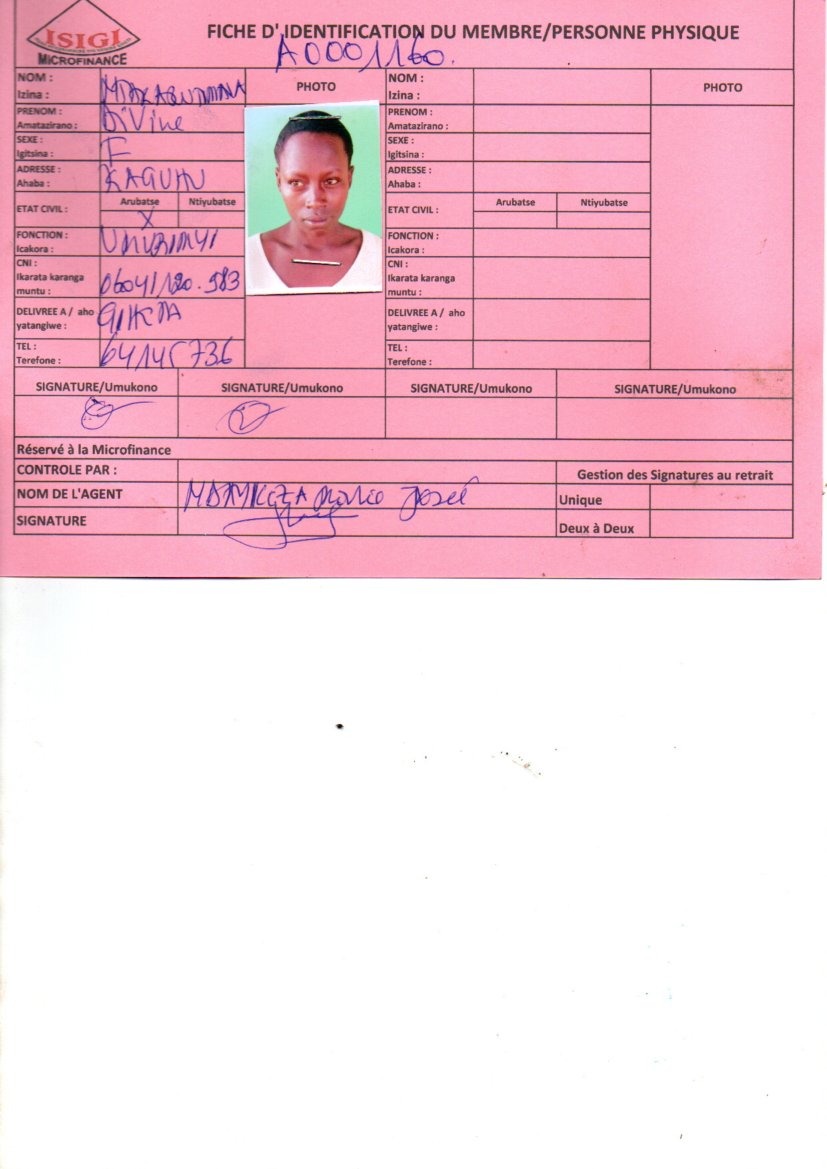 ISIGI
MICROFINANCE
FICHE D' IDENTIFICATION DU MEMBRE/PERSONNE PHYSIQUE
A0001160.
NOM :
Izina :
PHOTO
NOM :
Izina :
PHOTO
PRENOM :
Amatazirano :
Divine
PRENOM :
Amatazirano :
SEXE :
Igitsina :
F
SEXE :
Igitsina :
ADRESSE :
Ahaba :
KAGUHU
ADRESSE :
Ahaba :
ETAT CIVIL :
Arubatse
Ntiyubatse
X
ETAT CIVIL :
Arubatse
Ntiyubatse
FONCTION :
Icakora :
UMURIMYI
FONCTION :
Icakora :
CNI :
Ikarata karanga
muntu :
0604/120.983
CNI :
Ikarata karanga
muntu :
DELIVREE A / aho
yatangiwe :
DELIVREE A / aho
yatangiwe :
TEL :
Terefone :
64145736
TEL :
Terefone :
SIGNATURE/Umukono
SIGNATURE/Umukono
SIGNATURE/Umukono
SIGNATURE/Umukono
Réservé à la Microfinance
CONTROLE PAR :
Gestion des Signatures au retrait
NOM DE L'AGENT
José
Unique
SIGNATURE
Deux à Deux